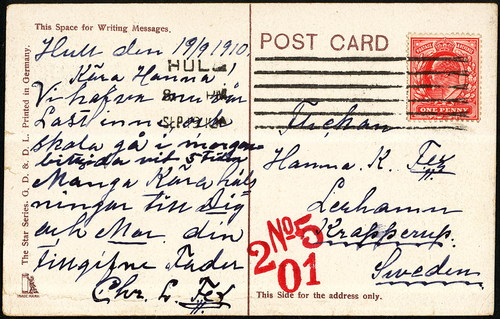 This Space for Writing Messages.
Hull den 19/9 1910.
Kära Hanna!
Vi hafva nu vår
Last inne och
skola gå i morgon
bittida vit 5 tiden
Många Kära häls
ningar till Dig
och Mor. din
tingifne Fader
Chr. L. Fex
The Star Series. G. D. & D. L. Printed in Germany.
TRADE MARK
POST CARD
HULL
ONE PENNY
Fröken
Hanna K. Fex
Lerhamn
Krapperup.
Sweden
No 5
2
01
This Side for the address only.